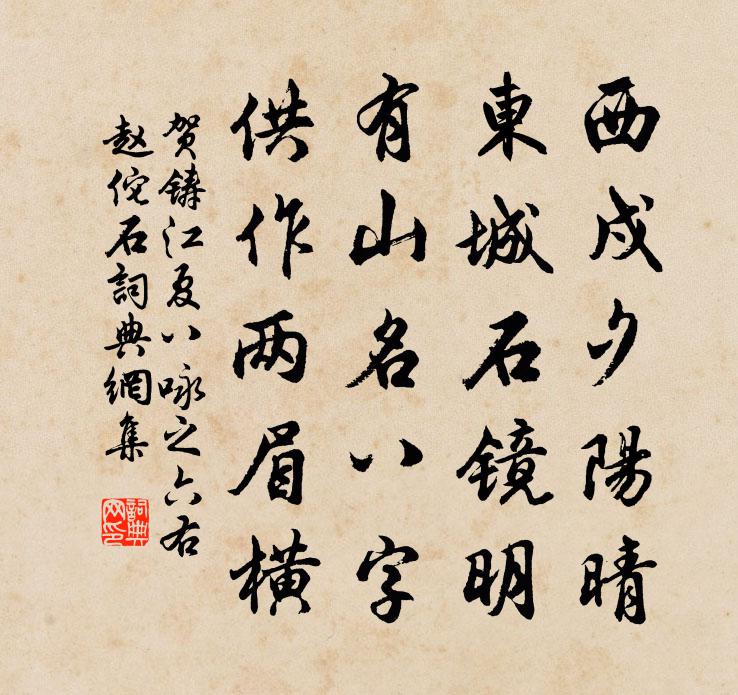 西戍夕陽晴
東城石镜明
有山名八字
供作两眉横
贺鑄江夏八咏之六右
赵佗石詞典網集
詞典网印